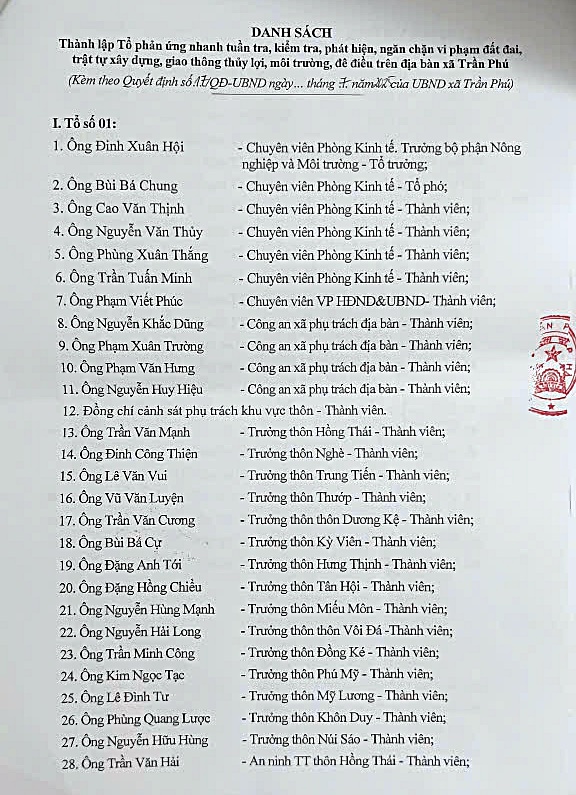 DANH SÁCH
Thành lập Tổ phản ứng nhanh tuần tra, kiểm tra, phát hiện, ngăn chặn vi phạm đất đai,
trật tự xây dựng, giao thông thủy lợi, môi trường, đê điều trên địa bàn xã Trần Phú
(Kèm theo Quyết định số /QĐ-UBND ngày... tháng 7. năm của UBND xã Trần Phú)
I. Tổ số 01:
1. Ông Đinh Xuân Hội - Chuyên viên Phòng Kinh tế. Trưởng bộ phận Nông
nghiệp và Môi trường - Tổ trưởng;
2. Ông Bùi Bá Chung - Chuyên viên Phòng Kinh tế - Tổ phó;
3. Ông Cao Văn Thịnh - Chuyên viên Phòng Kinh tế - Thành viên;
4. Ông Nguyễn Văn Thủy - Chuyên viên Phòng Kinh tế - Thành viên;
5. Ông Phùng Xuân Thắng - Chuyên viên Phòng Kinh tế - Thành viên;
6. Ông Trần Tuấn Minh - Chuyên viên Phòng Kinh tế - Thành viên;
7. Ông Phạm Viết Phúc - Chuyên viên VP HĐND&UBND- Thành viên;
8. Ông Nguyễn Khắc Dũng - Công an xã phụ trách địa bàn - Thành viên;
9. Ông Phạm Xuân Trường - Công an xã phụ trách địa bàn - Thành viên;
10. Ông Phạm Văn Hưng - Công an xã phụ trách địa bàn - Thành viên;
11. Ông Nguyễn Huy Hiệu - Công an xã phụ trách địa bàn - Thành viên;
12. Đồng chí cảnh sát phụ trách khu vực thôn - Thành viên.
13. Ông Trần Văn Mạnh - Trưởng thôn Hồng Thái - Thành viên;
14. Ông Đinh Công Thiện - Trưởng thôn Nghè - Thành viên;
15. Ông Lê Văn Vui - Trưởng thôn Trung Tiến - Thành viên;
16. Ông Vũ Văn Luyện - Trưởng thôn Thượp - Thành viên;
17. Ông Trần Văn Cương - Trưởng thôn thôn Dương Kệ - Thành viên;
18. Ông Bùi Bá Cự - Trưởng thôn Kỳ Viên - Thành viên;
19. Ông Đặng Anh Tới - Trưởng thôn Hưng Thịnh - Thành viên;
20. Ông Đặng Hồng Chiều - Trưởng thôn Tân Hội - Thành viên;
21. Ông Nguyễn Hùng Mạnh - Trưởng thôn Miếu Môn - Thành viên;
22. Ông Nguyễn Hải Long - Trưởng thôn thôn Vôi Đá -Thành viên;
23. Ông Trần Minh Công - Trưởng thôn Đồng Ké - Thành viên;
24. Ông Kim Ngọc Tạc - Trưởng thôn Phú Mỹ - Thành viên;
25. Ông Lê Đình Tư - Trưởng thôn Mỹ Lương - Thành viên;
26. Ông Phùng Quang Lược - Trưởng thôn Khôn Duy - Thành viên;
27. Ông Nguyễn Hữu Hùng - Trưởng thôn Núi Sáo - Thành viên;
28. Ông Trần Văn Hải - An ninh TT thôn Hồng Thái - Thành viên;